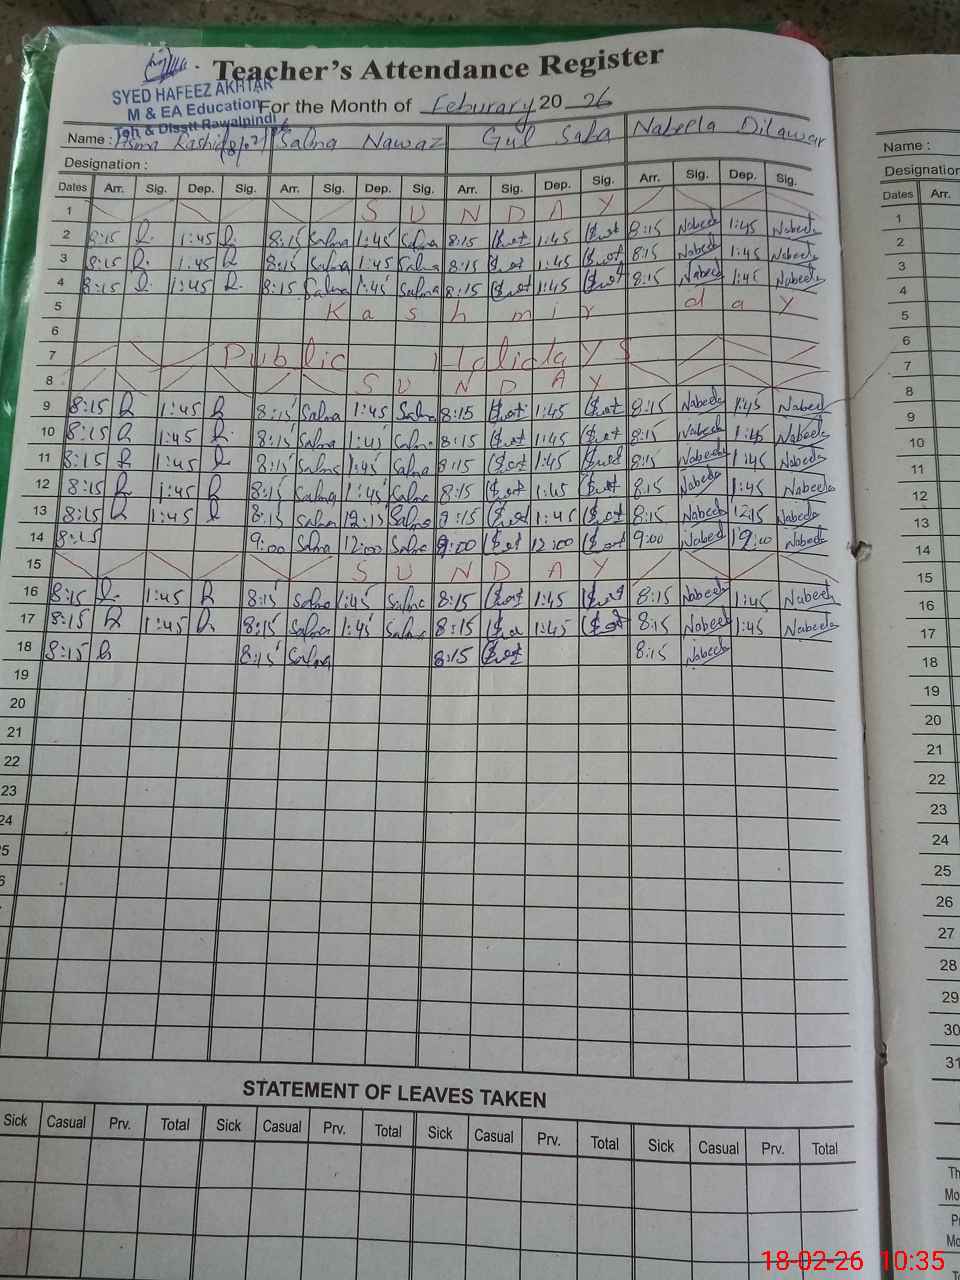 Teacher's Attendance Register
SYED HAFEEZ AKHTAR
M & EA Education
Teh & Disstt Rawalpindi
For the Month of Feburary 20 26
Name : Asma Rashid Salma Nawaz Gul Saba Nabeela Dilawar
Designation :
Dates Arr. Sig. Dep. Sig. Arr. Sig. Dep. Sig. Arr. Sig. Dep. Sig. Arr. Sig. Dep. Sig.
1 SUNDAY
2 8:15 1:45 8:15 Salma 1:45 Salma 8:15 1:45 8:15 Nabeela 1:45 Nabeela
3 8:15 1:45 8:15 Salma 1:45 Salma 8:15 1:45 8:15 Nabeela 1:45 Nabeela
4 8:15 1:45 8:15 Salma 1:45 Salma 8:15 1:45 8:15 Nabeela 1:45 Nabeela
5 Kashmir day
6
7 Public Holidays
8 SUNDAY
9 8:15 1:45 8:15 Salma 1:45 Salma 8:15 1:45 8:15 Nabeela 1:45 Nabeela
10 8:15 1:45 8:15 Salma 1:45 Salma 8:15 1:45 8:15 Nabeela 1:45 Nabeela
11 8:15 1:45 8:15 Salma 1:45 Salma 8:15 1:45 8:15 Nabeela 1:45 Nabeela
12 8:15 1:45 8:15 Salma 1:45 Salma 8:15 1:45 8:15 Nabeela 1:45 Nabeela
13 8:15 1:45 8:15 Salma 12:15 Salma 8:15 1:45 8:15 Nabeela 12:15 Nabeela
14 8:15 9:00 Salma 12:00 Salma 9:00 12:00 9:00 Nabeela Nabeela
15 SUNDAY
16 8:15 1:45 8:15 Salma 1:45 Salma 8:15 1:45 8:15 Nabeela 1:45 Nabeela
17 8:15 1:45 8:15 Salma 1:45 Salma 8:15 1:45 8:15 Nabeela 1:45 Nabeela
18 8:15 8:15 Salma 8:15 8:15 Nabeela
19
20
21
22
23
24
STATEMENT OF LEAVES TAKEN
Sick Casual Prv. Total Sick Casual Prv. Total Sick Casual Prv. Total Sick Casual Prv. Total
Name :
Designation
Dates Arr.
1
2
3
4
5
6
7
8
9
10
11
12
13
14
15
16
17
18
19
20
21
22
23
24
25
26
27
28
29
30
31
Th
Mo
Pr
Mo
18-02-26 10:35